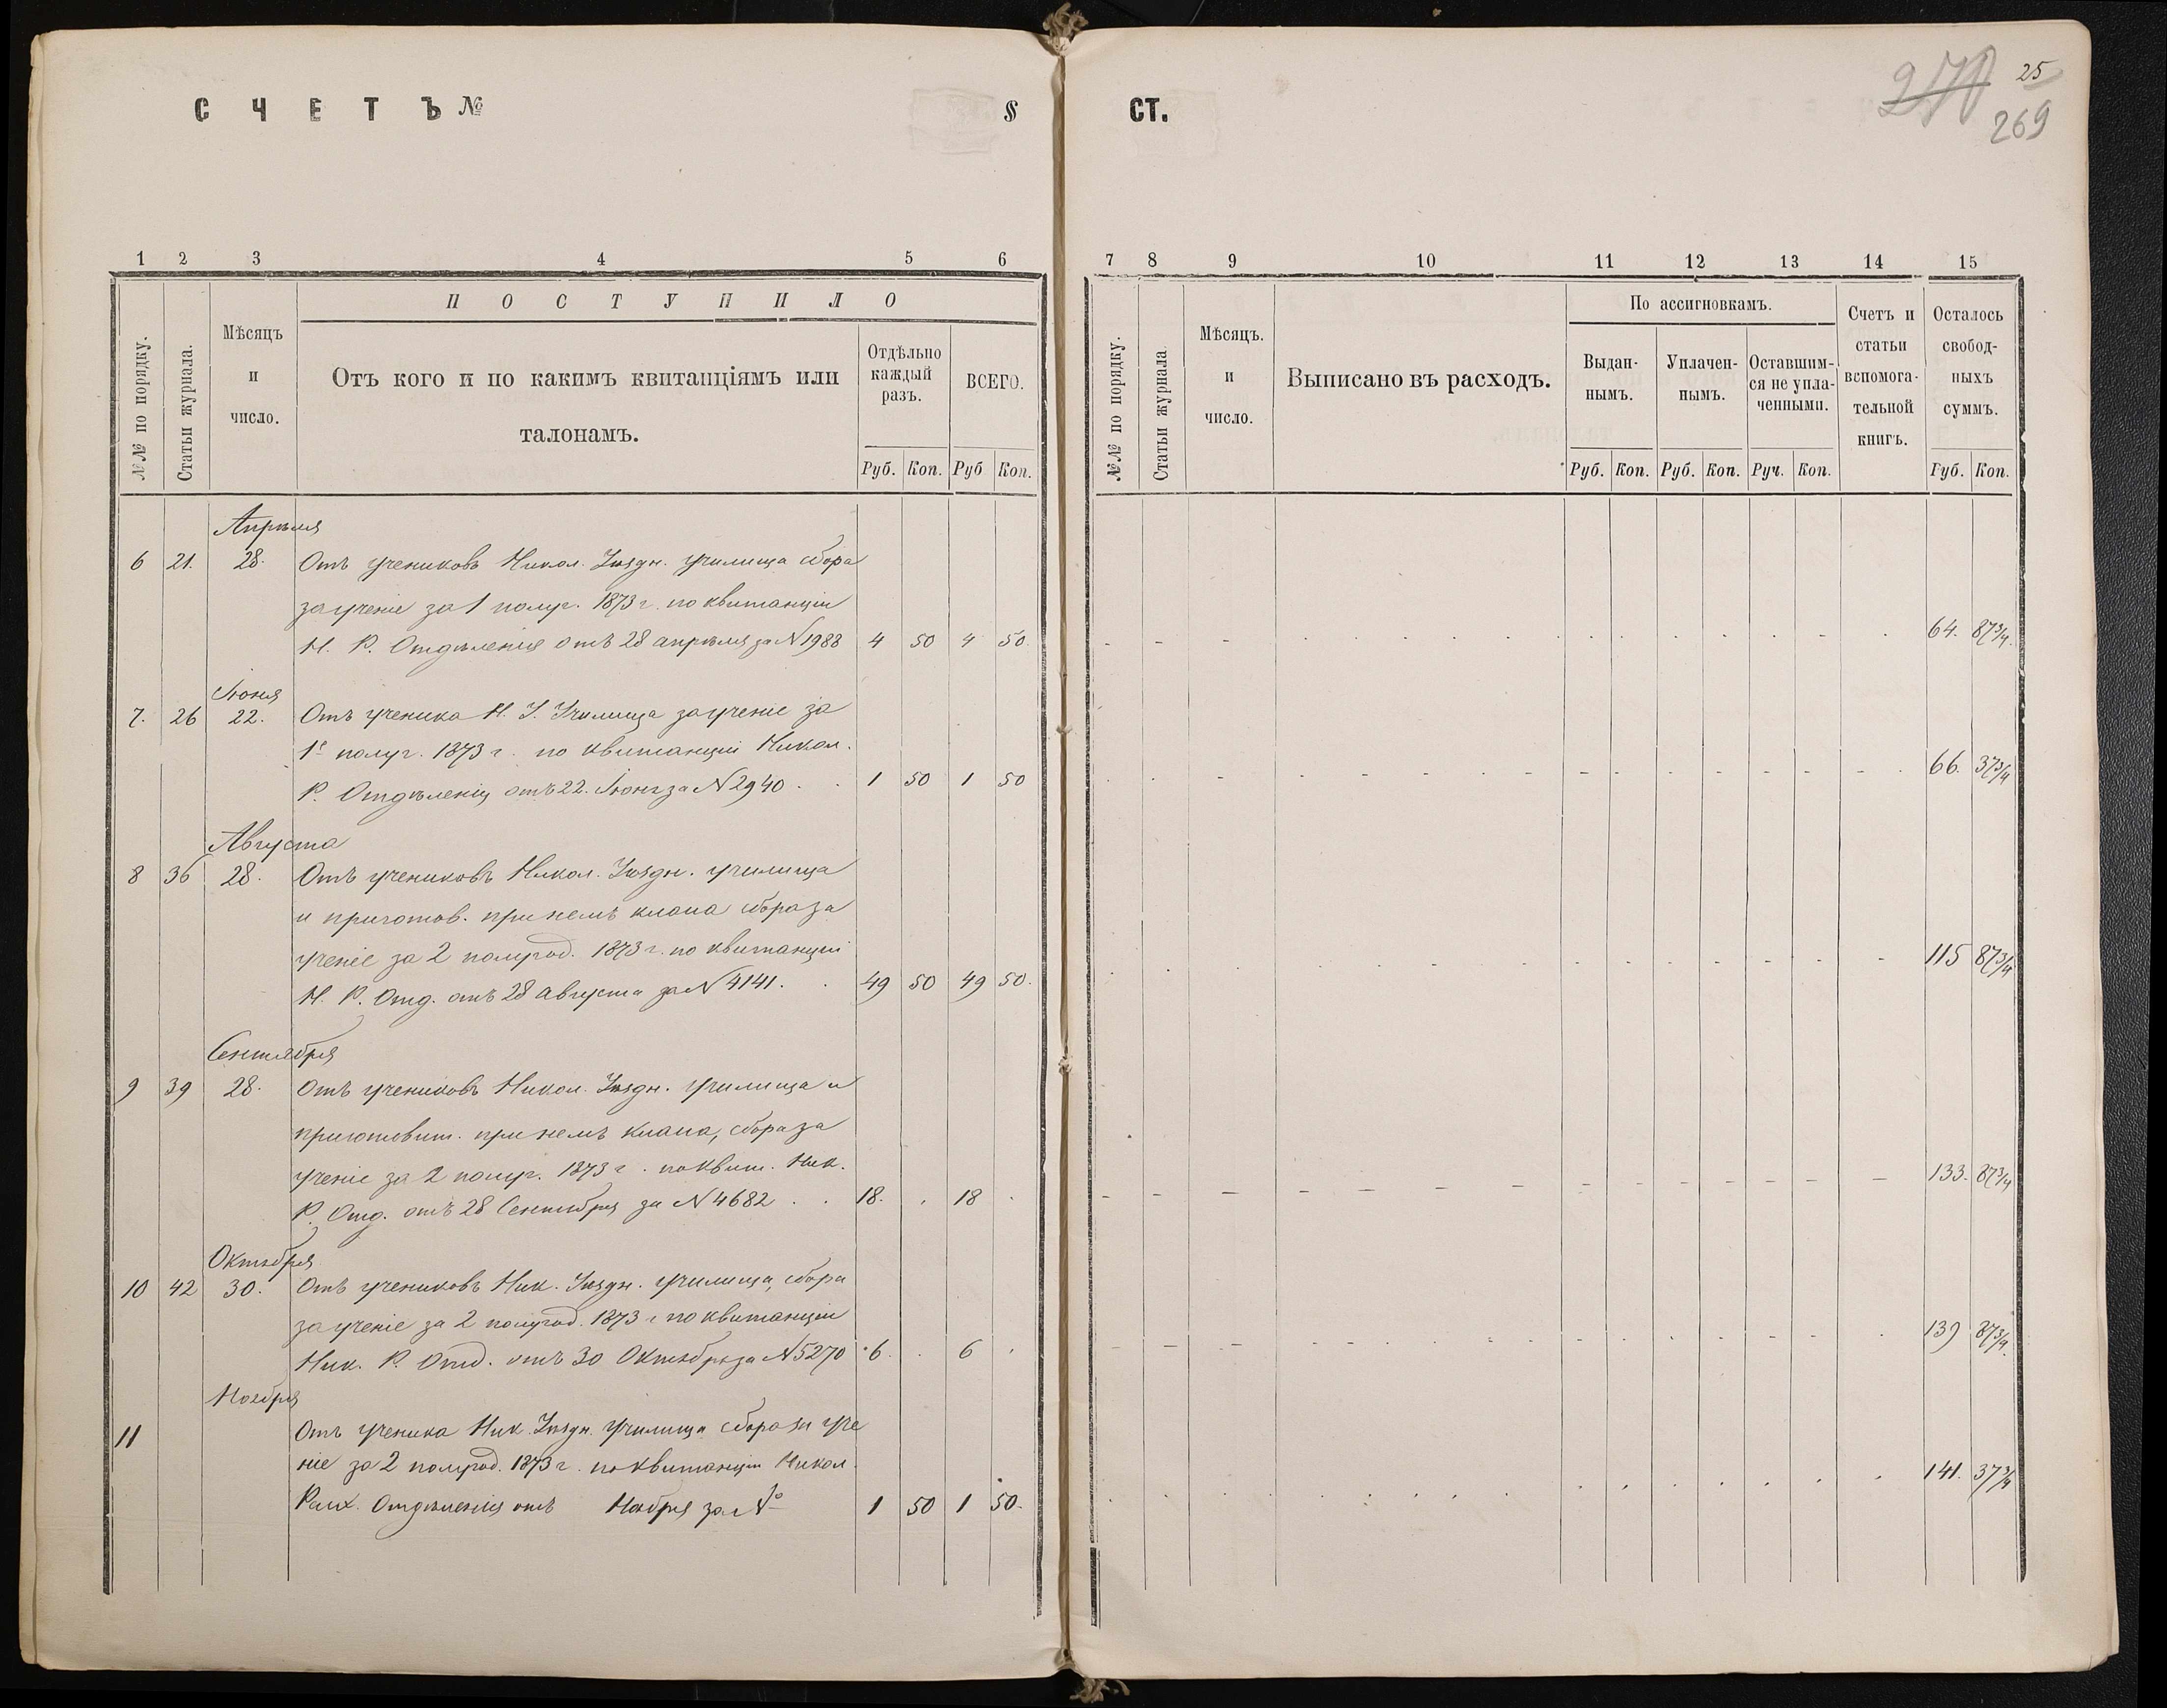 СЧЕТЪ № § СТ.
270 25
269
1 2 3 4 5 6 7 8 9 10 11 12 13 14 15
№№ по порядку.
Статьи журнала.
Мѣсяцъ
и
число.
ПОСТУПИЛО
Отъ кого и по какимъ квитанціямъ или
талонамъ.
Отдѣльно
каждый
разъ.
ВСЕГО.
Руб. Коп. Руб Коп.
№№ по порядку.
Статьи журнала
Мѣсяцъ.
и
число.
Выписано въ расходъ.
По ассигновкамъ.
Выдан-
нымъ.
Уплачен-
нымъ.
Оставшим-
ся не упла-
ченными.
Счетъ и
статьи
вспомога-
тельной
книгъ.
Осталось
свобод-
ныхъ
суммъ.
Руб. Коп. Руб. Коп. Руч. Коп. Руб. Коп.
Апрѣля
6 21. 28. Отъ учениковъ Никол. Уѣздн. училища сбора
за ученіе за 1 полуг. 1873 г. по квитанціи
Н. Р. Отдѣленія отъ 28 апрѣля за N 1988 4 50 4 50 64. 87 3/4.
Іюня
7. 26 22. Отъ ученика Н. У. Училища за ученіе за
1е полуг. 1873 г. по квитанціи Никол.
Р. Отдѣленія отъ 22. Іюня за N 2940 . . 1 50 1 50 66. 37 3/4
Августа
8 36 28. Отъ учениковъ Никол. Уѣздн. училища
и приготов. при немъ класа сбора за
ученіе за 2 полугод. 1873 г. по квитанціи
Н. Р. Отд. отъ 28 Августа за N 4141. . 49 50 49 50. 115 87 3/4
Сентября
9 39 28. Отъ учениковъ Никол. Уѣздн. училища и
приготовит. при немъ класа, сбора за
ученіе за 2 полуг. 1873 г. по квит. Ник.
Р. Отд. отъ 28 Сентября за N 4682 . . 18. . 18 . 133. 87 3/4
Октября
10 42 30. Отъ учениковъ Ник. Уѣздн. училища, сбора
за ученіе за 2 полугод. 1873 г по квитанціи
Ник. Р. Отд. отъ 30 Октября за N 5270 6. . 6 . 139 87 3/4.
Ноября
11 Отъ ученика Ник. Уѣздн. Училища сбора за уче
ніе за 2 полугод. 1873 г. по квитанціи Никол.
Отдѣленія отъ Ноября за № 1 50 1 50. 141. 37 3/4